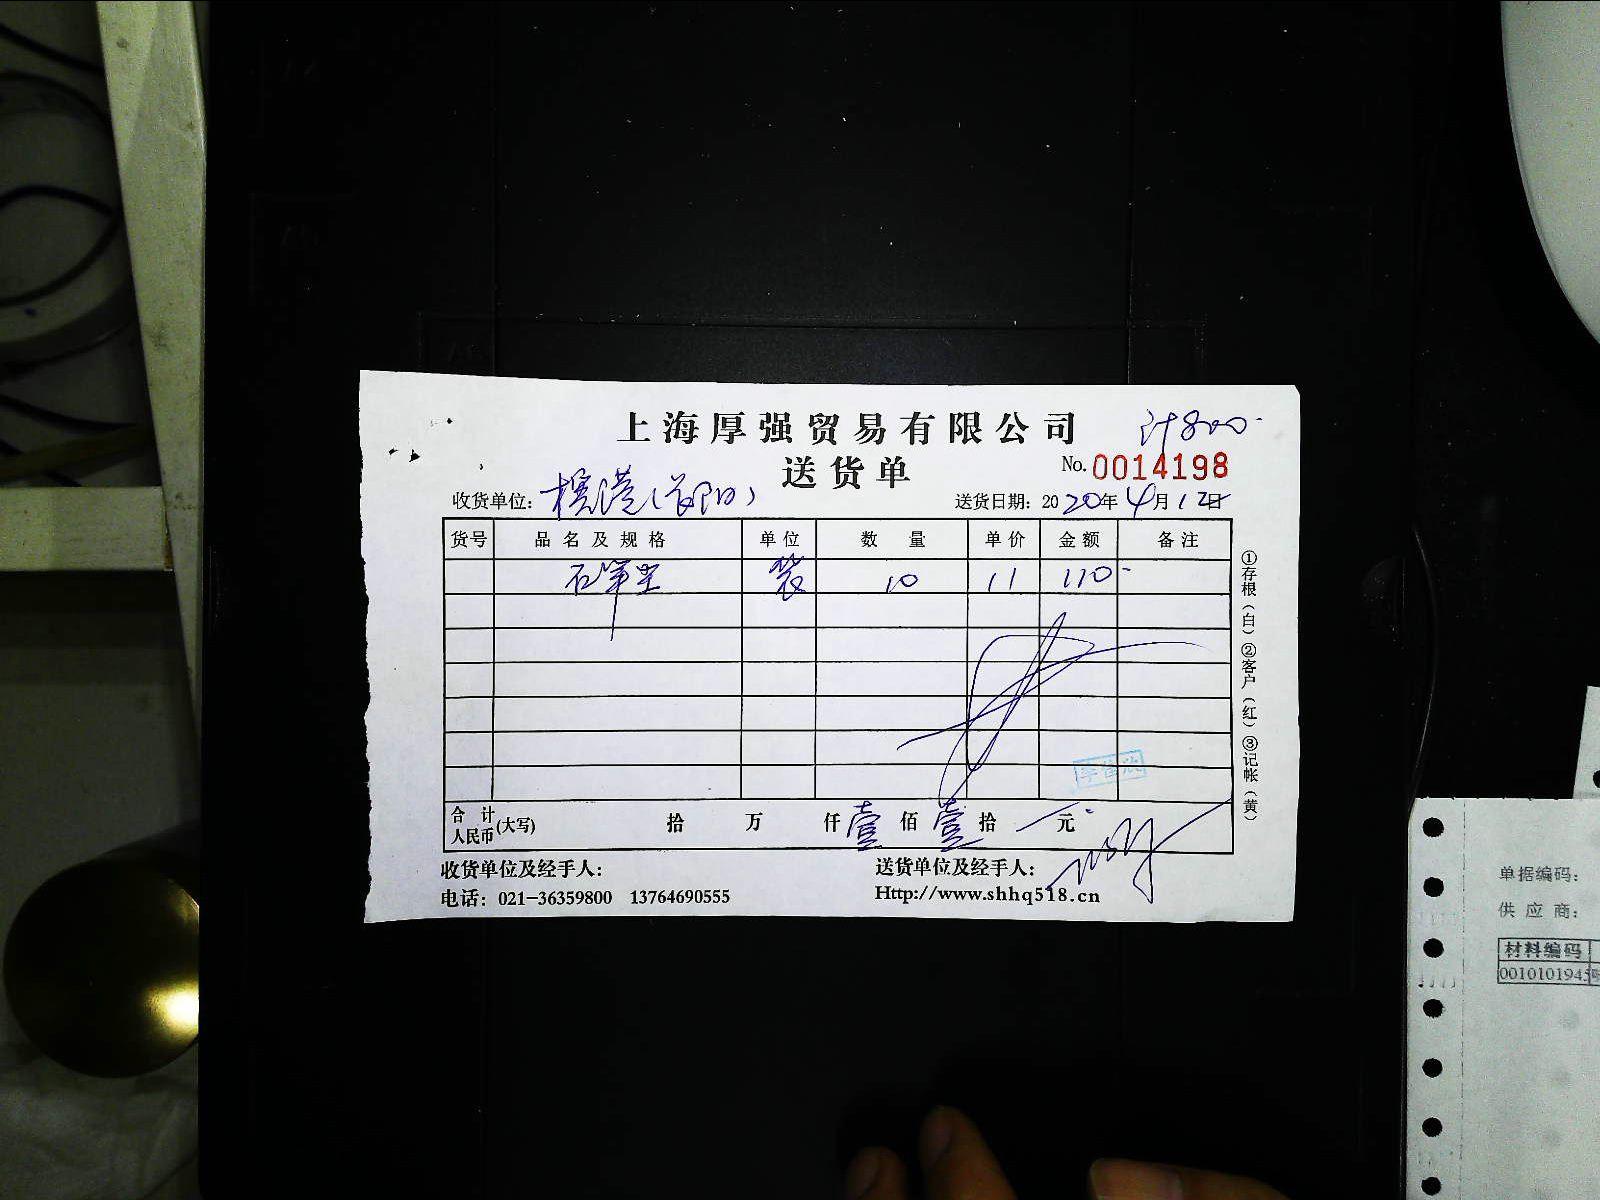 上海厚强贸易有限公司 计800-
送货单 No.0014198
收货单位: 送货日期: 2020年4月12日
货号 品名及规格 单位 数量 单价 金额 备注
石笔 10 11 110-
合计人民币(大写) 拾 万 仟 壹 佰 壹 拾 元
收货单位及经手人: 送货单位及经手人:
电话: 021-36359800 13764690555 Http://www.shhq518.cn
①存根(白)②客户(红)③记帐(黄)
单据编码:
供应商:
材料编码
0010101945